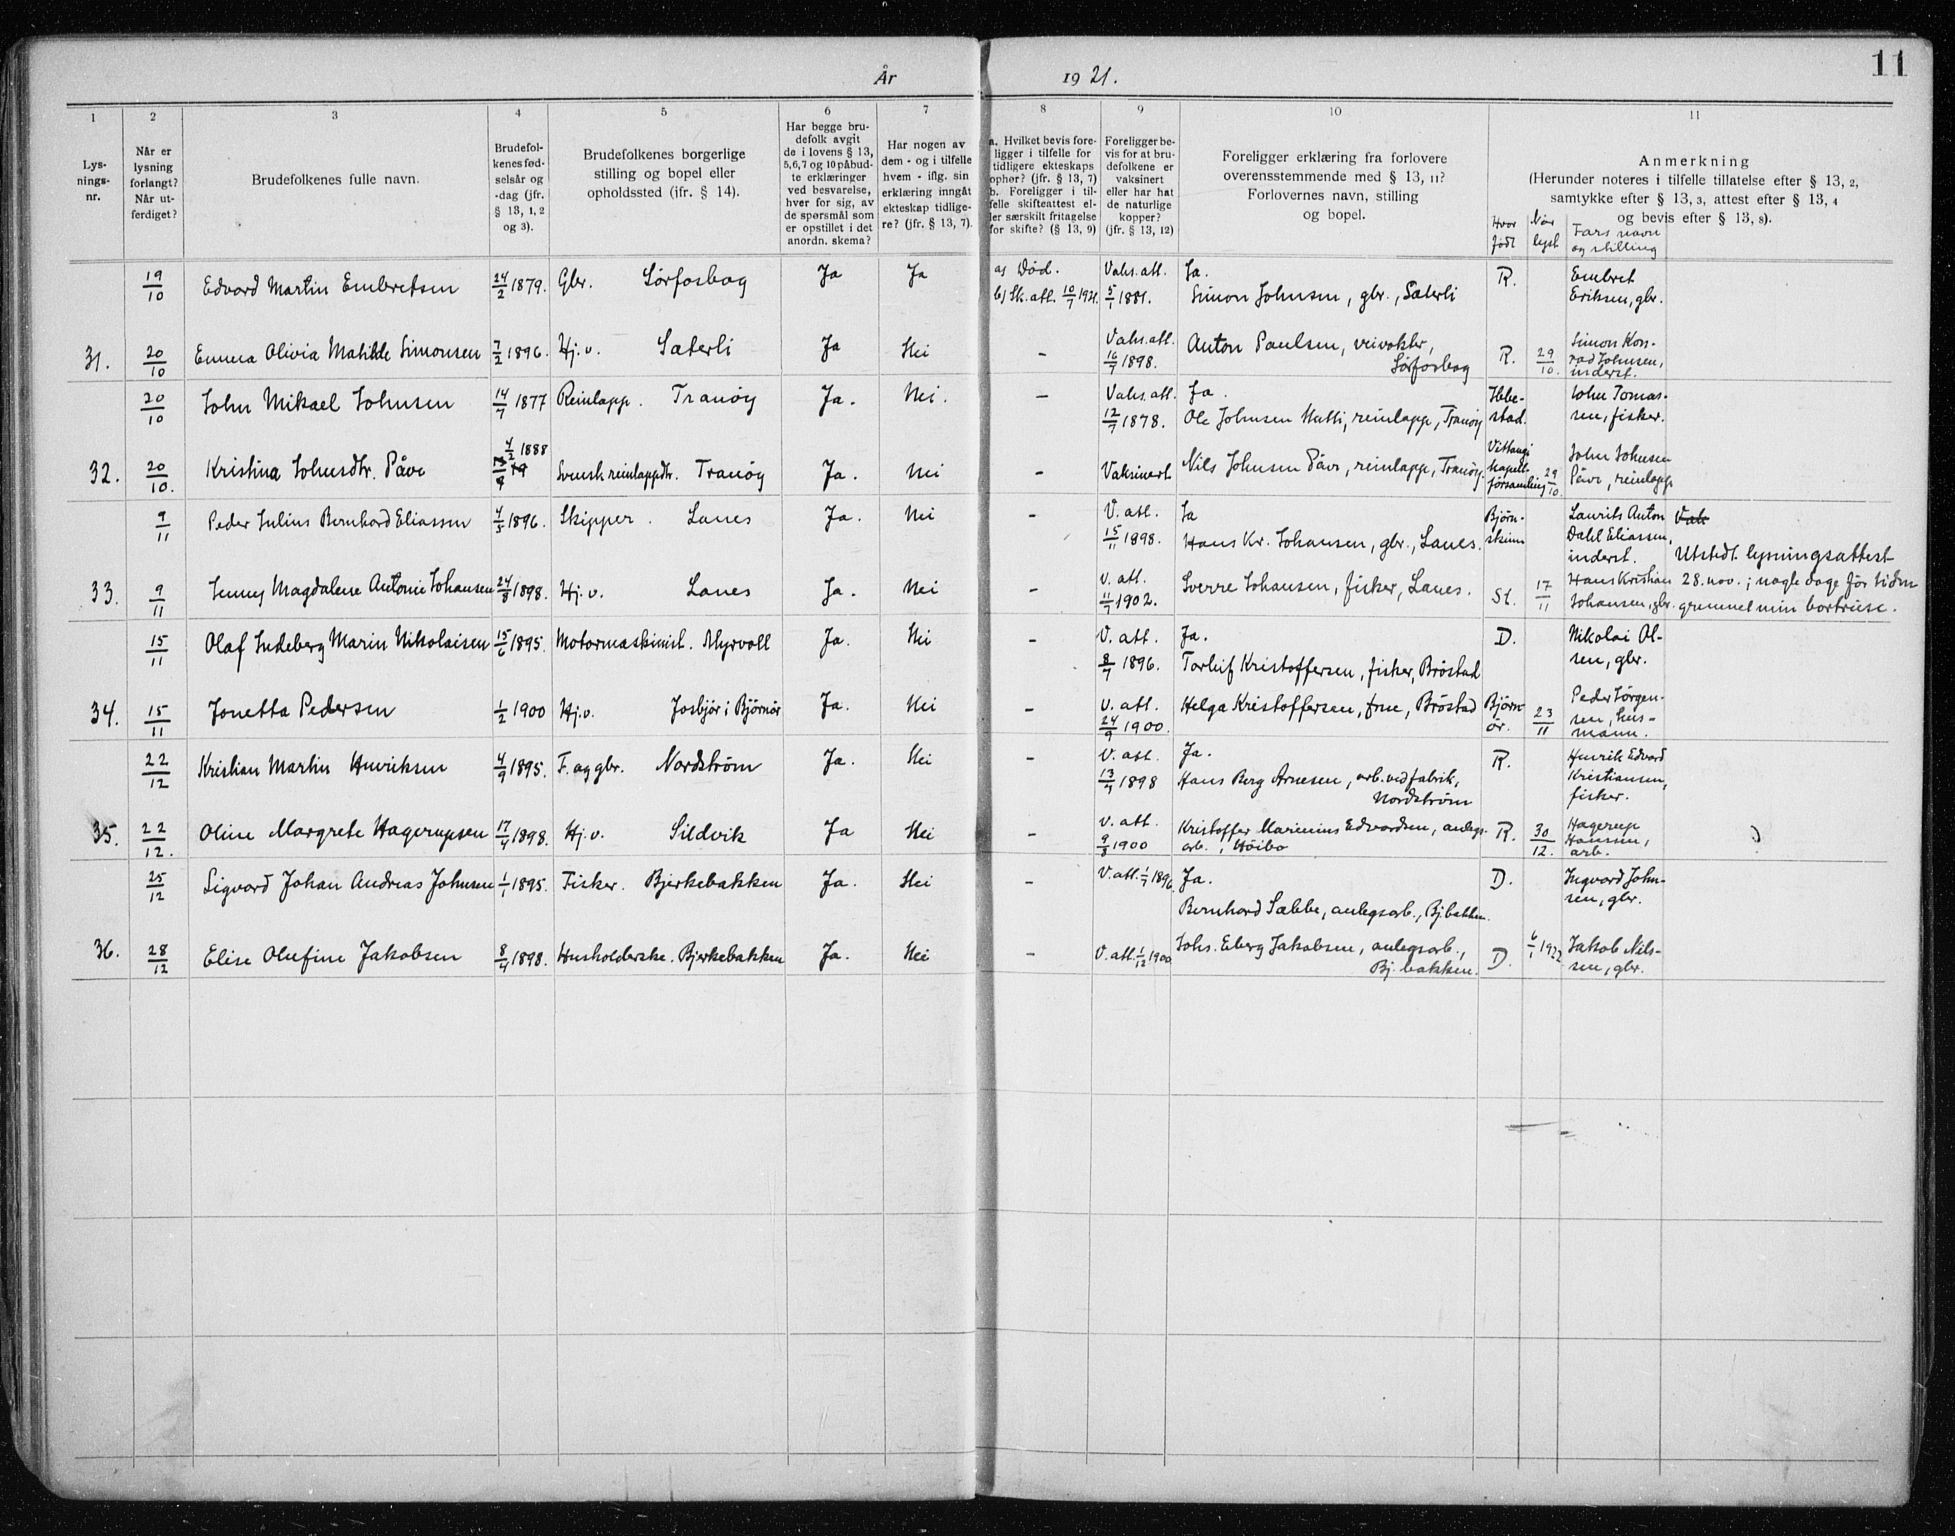 11
År 1921.
1 2 3 4 5 6 7 8 9 10 11
Lysningsnr.
Når er lysning forlangt? Når utferdiget?
Brudefolkenes fulle navn.
Brudefolkenes fødselsår og -dag (jfr. § 13, 1, 2 og 3).
Brudefolkenes borgerlige stilling og bopel eller opholdssted (ifr. § 14).
Har begge brudefolk avgit de i lovens § 13, 5, 6, 7 og 10 påbudte erklæringer ved besvarelse, hver for sig, av de spørsmål som er opstillet i det anordn. skema?
Har nogen av dem - og i tilfelle hvem - iflg. sin erklæring inngåt ekteskap tidligere? (jfr. § 13, 7).
a. Hvilket bevis foreligger i tilfelle for tidligere ekteskaps ophør? (jfr. § 13, 7) b. Foreligger i tilfelle skifteattest eller særskilt fritagelse for skifte? (§ 13, 9)
Foreligger bevis for at brudefolkene er vaksinert eller har hat de naturlige kopper? (jfr. § 13, 12)
Foreligger erklæring fra forlovere overensstemmende med § 13, 11? Forlovernes navn, stilling og bopel.
Anmerkning (Herunder noteres i tilfelle tillatelse efter § 13, 2, samtykke efter § 13, 3, attest efter § 13, 4 og bevis efter § 13, 8).
Hvor født Når lyst Fars navn og stilling
19/10 Edvard Martin Embretsen 24/2 1879. Gbr. Sørfosbog Ja Ja a) Død. b) Sk. att. 10/7 1921. Vaks. att. 5/1 1881. Ja. Simon Johnsen, gbr., Sæterli R. Embret Eriksen, gbr.
31. 20/10 Emma Olivia Matilde Simonsen 7/2 1896. Hj. v. Sæterli Ja Nei - Vaks. att. 16/7 1898. Anton Paulsen, veivokter, Sørfosbog R. 29/10. Simon Konrad Johnsen, inderst.
20/10 John Mikael Johnsen 14/7 1877 Reinlapp. Tranøy Ja. Nei. - Vaks. att. 12/7 1878. Ja. Ole Johnsen Hutti, reinlapp, Tranøy Ibbestad. John Tomassen, fisker.
32. 20/10. Kristina Johnsdtr. Påve 4/2 1888 Svensk reinlappdtr. Tranøy Ja. Nei - Vaksinert Nils Johnsen Påve, reinlapp, Tranøy. Vittangi kapellförsamling 29/10. John Johnsen Påve, reinlapp
9/11 Peder Julius Bernhard Eliassen 4/5 1896. Skipper. Lanes Ja. Nei - V. att. 15/11 1898. Ja Hans Kr. Johansen, gbr., Lanes. Bjørnskinn Laurits Anton Dahl Eliassen, inderst. Vak
33. 9/11 Jenny Magdalene Antonie Johansen 24/8 1898. Hj. v. Lanes Ja. Nei - V. att. 11/7 1902. Sverre Johansen, fisker, Lanes. St. 17/11 Hans Kristian Johansen, gbr. Utstedt lysningsattest 28. nov.; nogle dage før tiden grunnet min bortreise.
15/11 Olaf Indeberg Marin Nikolaisen 15/6 1895. Motormaskinist. Myrvoll Ja. Nei - V. att. 8/7 1896. Ja. Torleif Kristoffersen, fisker, Brøstad D. Nikolai Olsen, gbr.
34. 15/11 Jonetta Pedersen 1/2 1900 Hj. v. Josbjør i Bjørnør Ja. Nei - V. att. 24/9 1900. Helga Kristoffersen, frue, Brøstad Bjørnør. 23/11 Peder Jørgensen, husmann.
22/12 Kristian Martin Henriksen 4/9 1895. F. og gbr. Nordstrøm Ja. Nei - V. att. 13/7 1898 Ja. Hans Berg Arnesen, arb. ved fabrik, Nordstrøm R. Henrik Edvard Kristiansen, fisker.
35. 22/12. Oline Margrete Hagerupsen 17/4 1898. Hj. v. Sildvik Ja Nei - V. att. 9/8 1900 Kristoffer Marinius Edvardsen, anlegsarb., Høibo R. 30/12. Hagerup Hansen, arb.
25/12 Sigvard Johan Andreas Johnsen 1/1 1895. Fisker. Bjerkebakken Ja. Nei - V. att. 1/7 1896. Ja. Bernhard Sæbbe, anlegsarb., Bj.bakken. D. Ingvard Johnsen, gbr.
36. 28/12 Elise Olufine Jakobsen 8/4 1898. Husholderske. Bjerkebakken Ja. Nei - V. att. 1/12 1900 Johs. Eberg Jakobsen, anlegsarb., Bj. bakken. D. 6/1 1922. Jakob Nilssen, gbr.